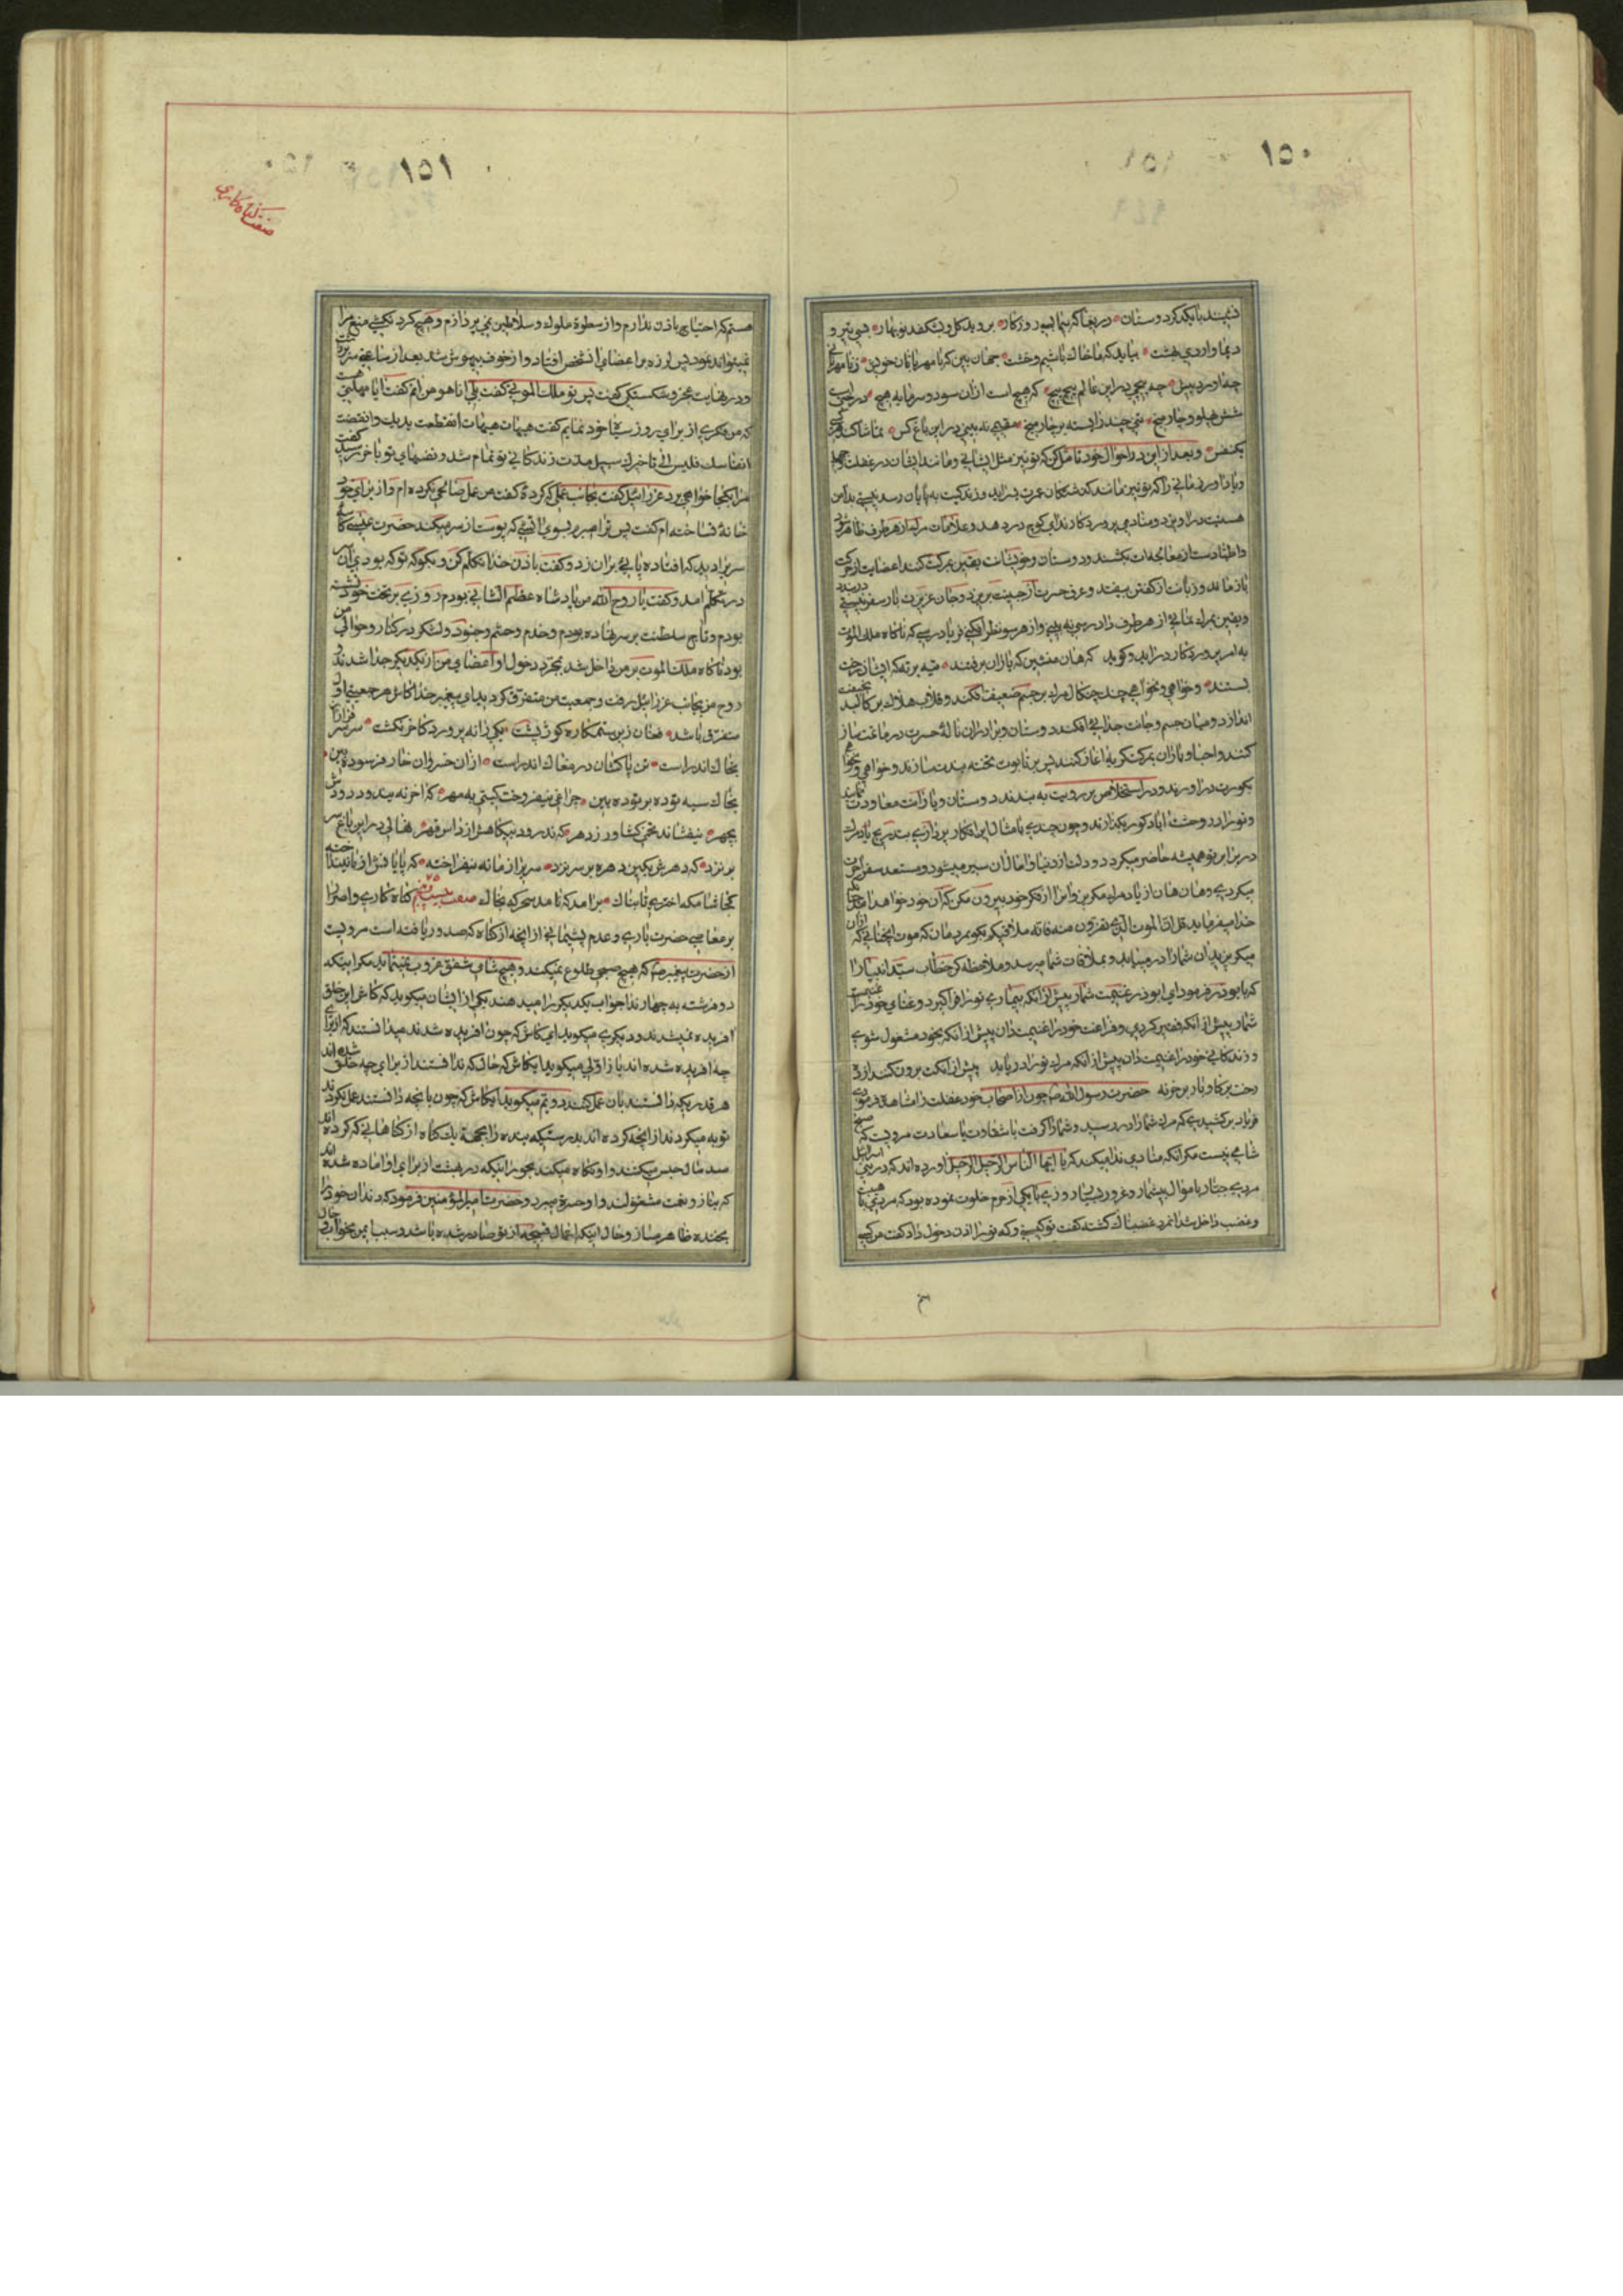 ١٥٠
نشینند با یکدگر دوستان دریغا که بیما بسی روزگار بروید گل و بشکفد نوبهار بسی تیر و
دیماه و اردی بهشت بیاید که ما خاک باشیم و خشت جهان بین که با مهربانان خویش ز نامهربانی
چه آورد پیش چه پیچی در این عالم پیچ پیچ که هیچ است از آن سود و سرمایه هیچ در این
شش پهلو و چار میخ تنی چند را بسته بر چار میخ مقیمی نه بینی در این باغ کس تماشا کند هر کسی
یکنفس و بعد از این در احوال خود تامل کن که تو نیز مثل ایشانی و مانند ایشان در غفلت
و یاد آور زمانی را که تو نیز مانند گذشتگان عمرت بسر آید و زندگیت به پایان رسد
در آویزد و منادی پروردگار ندای کوچ در دهد و علامات مرگ از هر طرف ظاهر
و اطبا دست از معالجه‌ات بکشند و دوستان و خویشانت یقین بمرگت کنند اعضایت از حرکت
باز ماند و زبانت از گفتن بیفتد و عرق حسرت از جبینت بریزد و جان عزیزت بار سفر
و یقین بمرگ نمائی از هر طرف دادرسی نه بینی و از هر سو نظر افکنی فریادرسی که ناگاه ملک الموت
به امر پروردگار درآید و گوید که هان منشین که یاران برفتند
بستند و خواهی نخواهی چند چنگال مرگ بر جسم ضعیفت افکند و قلاب هلاک بر کالبد
اندازد و میان جسم و جانت جدائی افکند دوستان و برادران ناله حسرت در ماتمت ساز
کنند و احبا و یاران بمرگت گریه آغاز کنند پس بر تابوت تخته بندت سازند و خواهی نخواهی
بگورت درآورند و در استخلاص بر رویت به بندند دوستان و یارانت معاودت نمایند
و تو را در وحشت آباد گور بگذارند و چون چندی بامثال این افکار پردازی بتدریج یاد مرگ
در برابر تو همیشه حاضر میگردد و دلت از دنیا و امال آن سیر میشود و مستعد سفر آخرت
میگردی و هان هان از یاد مرگ مگریز و آن را از فکر خود بیرون مکن که آن خود خواهد آمد
خدا میفرماید قل ان الموت الذی تفرون منه فانه ملاقیکم بگو بمردمان که موت
میگریزید آن شما را در میباید و بملاقات شما میرسد و ملاحظه کن خطاب سید انبیا را
که با بوذر فرمود ای ابوذر غنیمت شمار پیش از آنکه بیماری تو را فرا گیرد و غنای خود را غنیمت
شمار پیش از آنکه فقیر گردی و فراغت خود را غنیمت دان پیش از آنکه بخود مشغول شوی
و زندگانی خود را غنیمت دان پیش از آنکه مرگ تو را دریابد پیش از آنکت برون کنند از ده
رخت بر گاو و بار بر خر نه حضرت رسول الله چون از اصحاب خود غفلت را مشاهده فرمودی
فریاد بر کشیدی که مرگ شما را در رسید و شما را گرفت یا شقاوت یا سعادت مرویست که صبح
شامی نیست مگر آنکه منادی ندا میکند که یا ایها الناس الرحیل الرحیل آورده‌اند که در بنی اسرائیل
مردی جبار با موال بیشمار و غرور بسیار روزی با یکی از حرم خلوت نموده بود که مردی با هیبت
و غضب داخل شد آنمرد غضبناک گشته گفت تو کیستی و که تو را اذن دخول داد گفت من کسی
١٥١
صفت گناه کاری
هستم که احتیاج باذن ندارم و از سطوة ملوک و سلاطین نمی پردازم و هیچ گردنکشی منع مرا
نمیتواند نمود پس لرزه بر اعضای آنشخص افتاد و از خوف بیهوش شد بعد از ساعتی سر برداشت
و در نهایت عجز و شکستگی گفت پس تو ملک الموتی گفت بلی انا هو من آنم گفت آیا مهلتی هست
که من فکری از برای روز سیاه خود نمایم گفت هیهات هیهات انقطعت مدتک و انقضت
انفاسک فلیس الی تاخیرک سبیل مدت زندگانی تو تمام شد و نفسهای تو باخر رسید گفت
مرا بکجا خواهی برد عزرائیل گفت بجانب عملی که کرده گفت من عمل صالحی نکرده‌ام و از برای خود
خانهٔ نساخته‌ام گفت پس ترا میبرم بسوی آتشی که پوست از سر میکند حضرت عیسی کاسه
سری دید که افتاده پائی بر آن زد و گفت باذن خدا تکلم کن و بگو که تو که بودی آن سر
در تکلم آمد و گفت یا روح الله من پادشاه عظیم الشانی بودم روزی بر تخت خود نشسته
بودم و تاج سلطنت بر سر نهاده بودم و خدم و حشم و جنود و لشکر در کنار و حوالی من
بود ناگاه ملک الموت بر من داخل شد بمجرد دخول او اعضای من از یکدیگر جدا شدند و
روح من بجانب عزرائیل رفت و جمعیت من متفرق گردید ای پیغمبر خدا کاش هر جمعیتی
متفرق باشد فغان زین ستمکاره کوژ پشت یکی را نه پرورد کاخر نکشت سر سرفرازان
بخاک اندر است تن پاکشان در مغاک اندر است از آن خسروان خاک فرسوده بین
بخاک سیه توده بر توده بین چراغی نیفروخت گیتی به مهر که آخر نه بیندود دودش
بچهر نیفشاند تخمی کشاورز دهر که ندرود بیگاهش از داس قهر نهالی در این باغ سر
بر نزد که دهرش بکین دهره بر سر نزد سری از مانه نیفراخته که پایانش از پا نینداخته
کجا شامگه اختری تابناک برآمد که نامد سحرگه بخاک صفت بیست و پنجم گناه کاری و اصرار
بر معاصی حضرت باری و عدم پشیمانی از آنچه از گناه که صدور یافته است مرویست
از حضرت پیغمبر که هیچ صبحی طلوع نمیکند و هیچ شام شفق غروب نمینماید مگر اینکه
دو فرشته به چهار ندا جواب یکدیگر را میدهند یکی از ایشان میگوید که کاش این خلق
آفریده نمیشدند و دیگری میگوید ای کاش که چون آفریده شدند میدانستند که از برای
چه آفریده شده‌اند باز اولی میگوید ایکاش که حال که ندانستند از برای چه خلق شده اند
هر قدریکه دانستند بان عمل کنند دویم میگوید ایکاش که چون بانچه دانستند عمل نکردند
توبه میکردند از آنچه کرده‌اند بدرستیکه بنده را بجهة یک گناه از گناهانی که کرده اند
صد سال حبس میکنند و او نگاه میکند بحور اینکه در بهشت از برای او آماده شده اند
که بناز و نعمت مشغولند و او حسرة میبرد و حضرت امیر المؤمنین فرمود که دندان خود را
بخنده ظاهر مساز و حال اینکه اعمال قبیحه از تو صادر شده باشد و سبب ایمن بخوابی